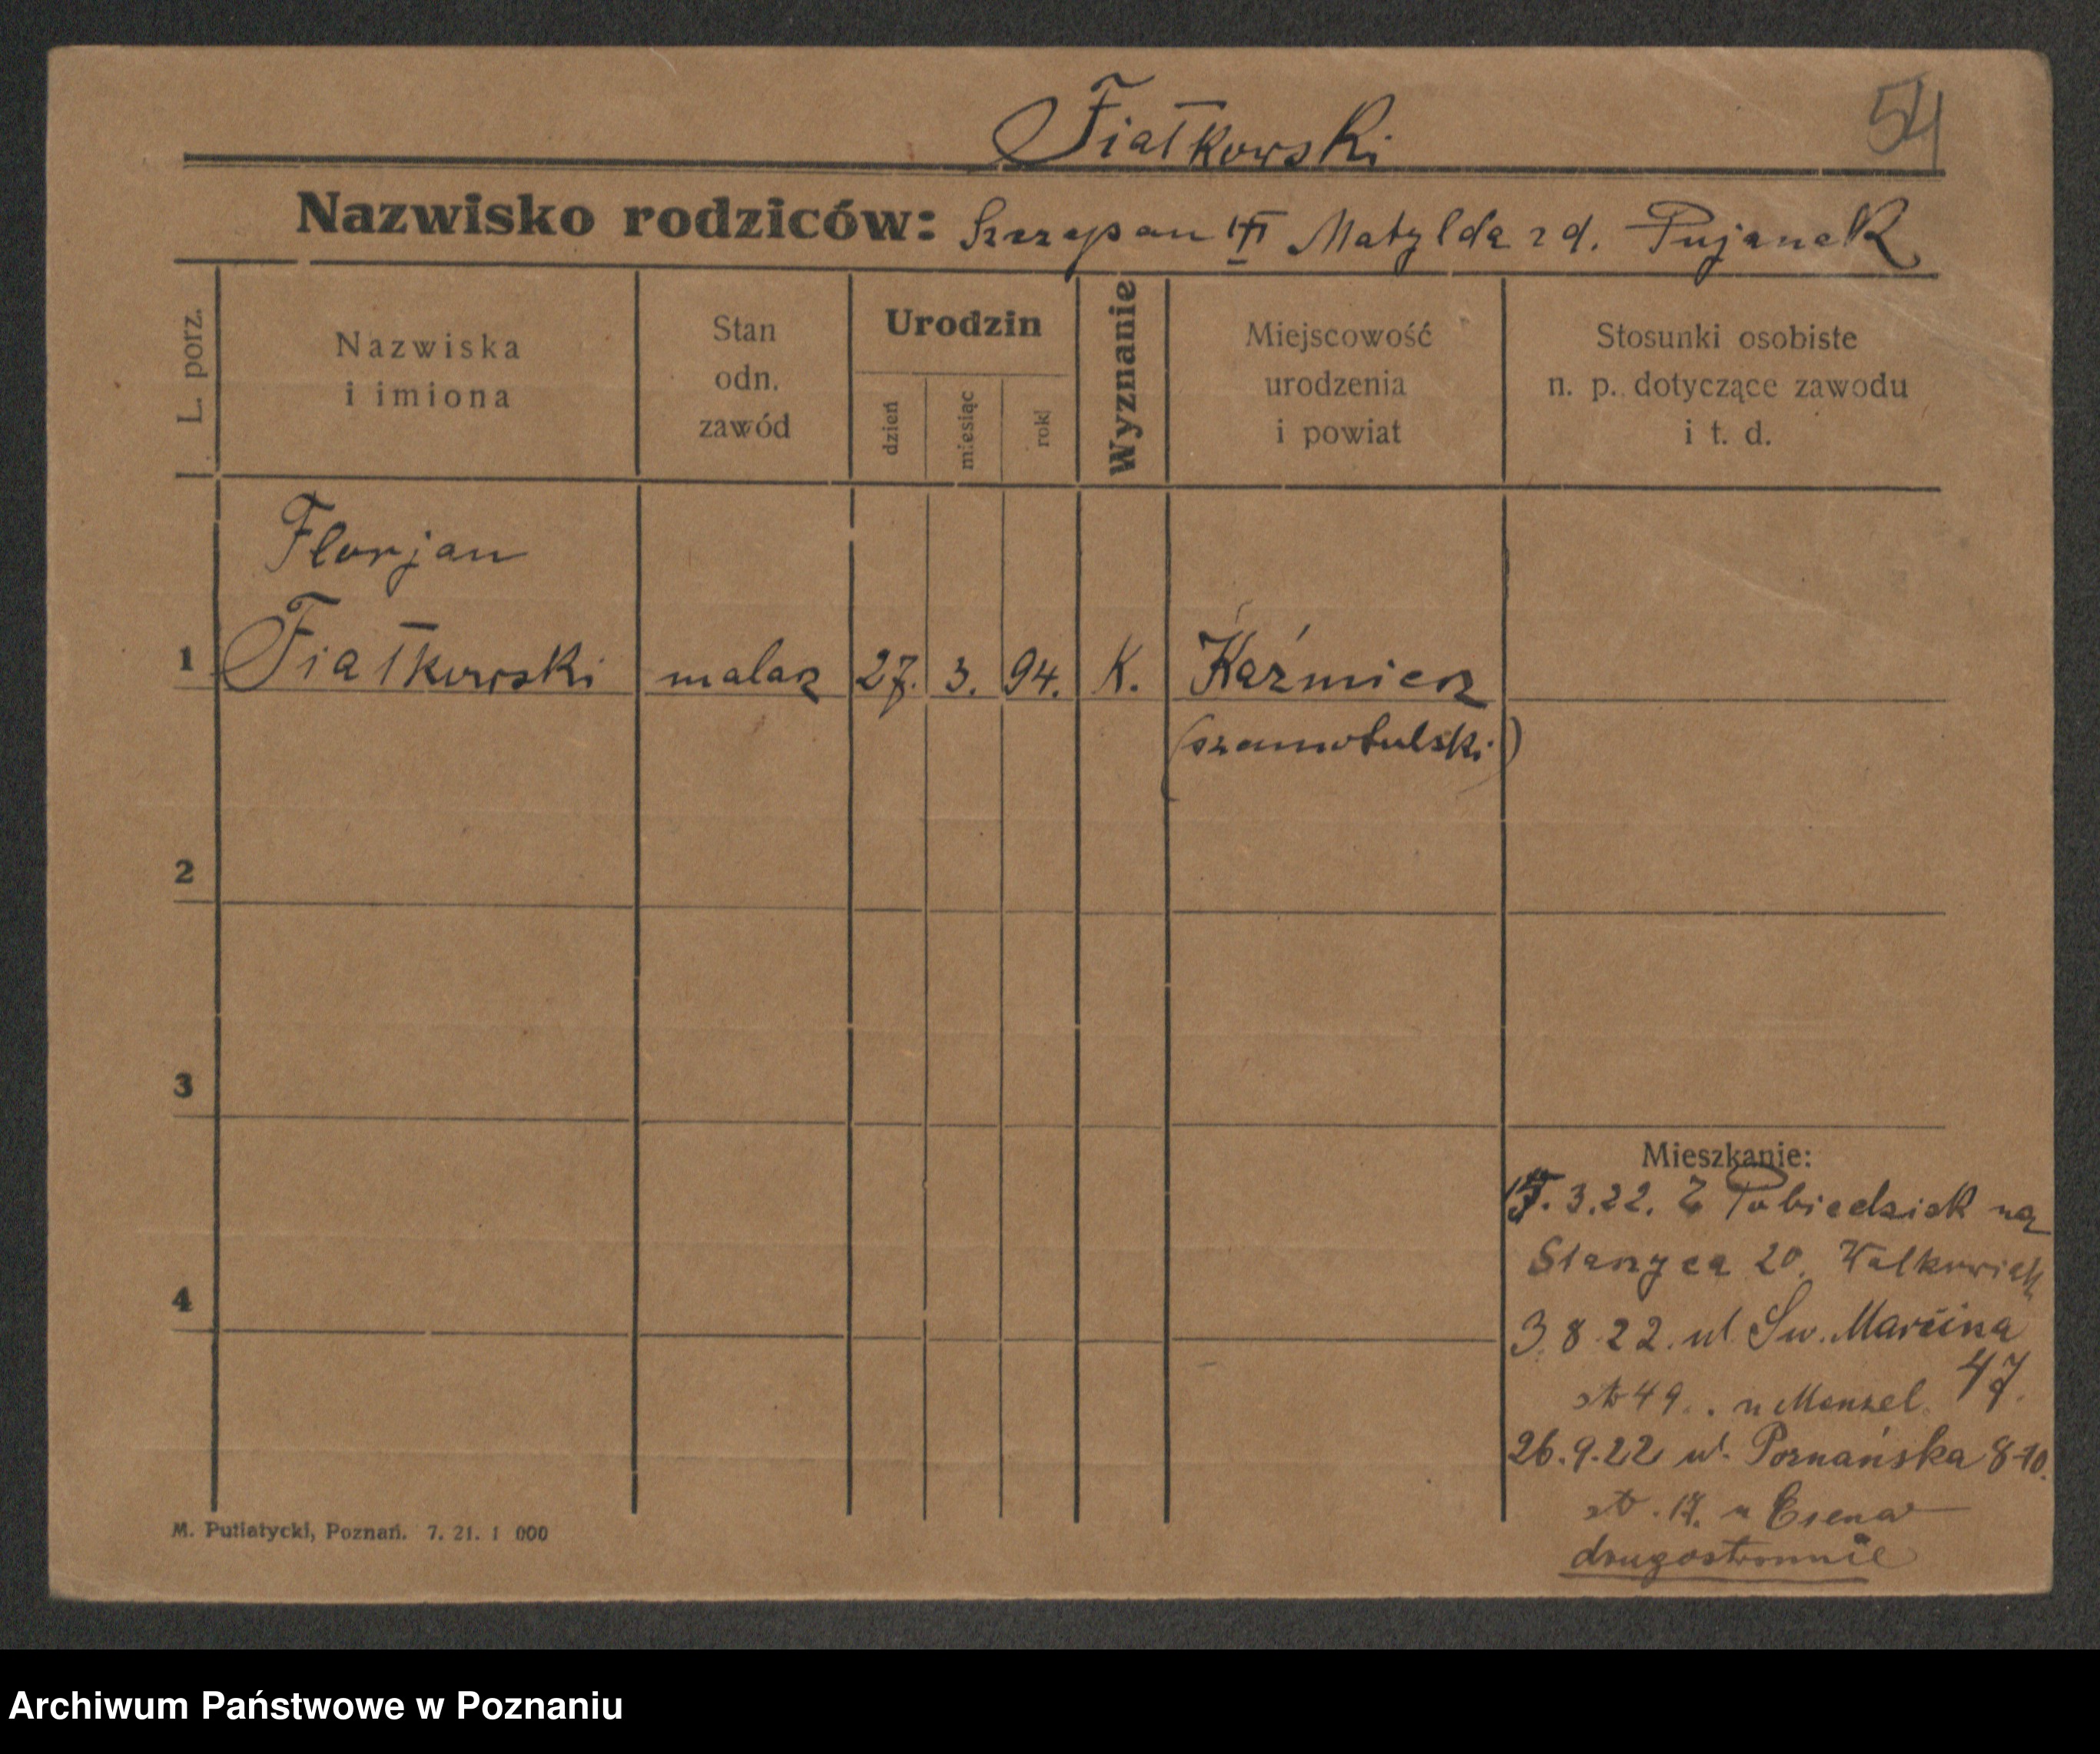 Fiałkowski
54
Nazwisko rodziców: Szczepan Matylda zd. Pujanek
L. porz.
Nazwiska
i imiona
Stan
odn.
zawód
Urodzin
dzień
miesiąc
rok
Wyznanie
Miejscowość
urodzenia
i powiat
Stosunki osobiste
n. p. dotyczące zawodu
i t. d.
Florjan
1 Fiałkowski malarz 27. 3. 94. K. Kaźmierz
(szamotulski)
2
3
4
Mieszkanie:
3.22. Z Pobiedzisk na
20. Walkowiak
3.8.22. ul. Św. Marcina
47.
49. u Menzel
26.9.22 ul. Poznańska 8-10.
17. u
drugostronnie
M. Putiatycki, Poznań. 7. 21. 1 000
Archiwum Państwowe w Poznaniu